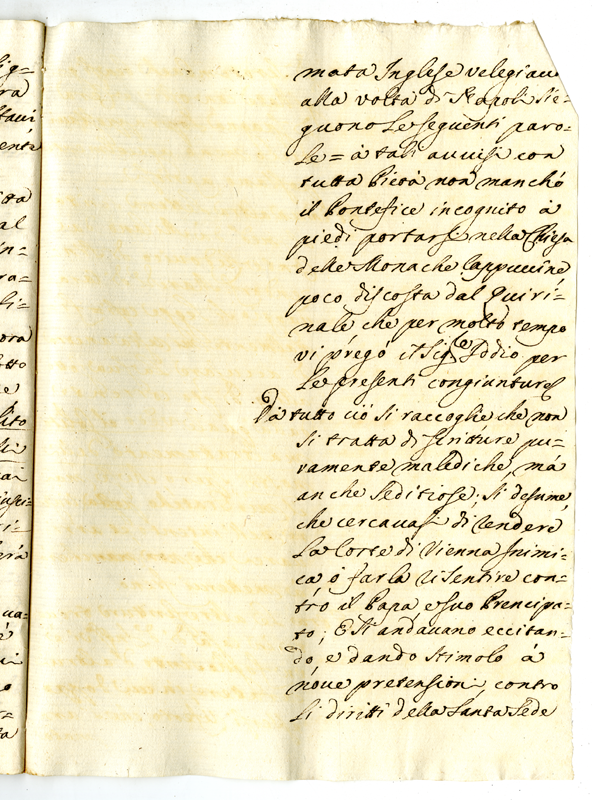 mata Inglese velegiava
alla volta di Napoli sie=
guono le seguenti paro=
le = à tali auuisi con
tutta Pietà non manchó
il Pontefice incognito à
piedi portarsi nella Chiesa
delle Monache Cappuccine
poco discosta dal Quiri=
nale che per molto tempo
vi pregó il Sig.re Iddio per
le presenti congionture
Dà tutto ció si raccoglie che non
si tratta di scritture pu=
ramente malediche, mà
anche seditiose; si desume,
che cercauasi di rendere
la Corte di Vienna Inimi=
ca ó farla risentire con=
tro il Papa, e suo Prencipa=
to; E si andauano eccitan=
do, e dando stimolo à
nuoue pretensioni contro
li diritti della Santa Sede